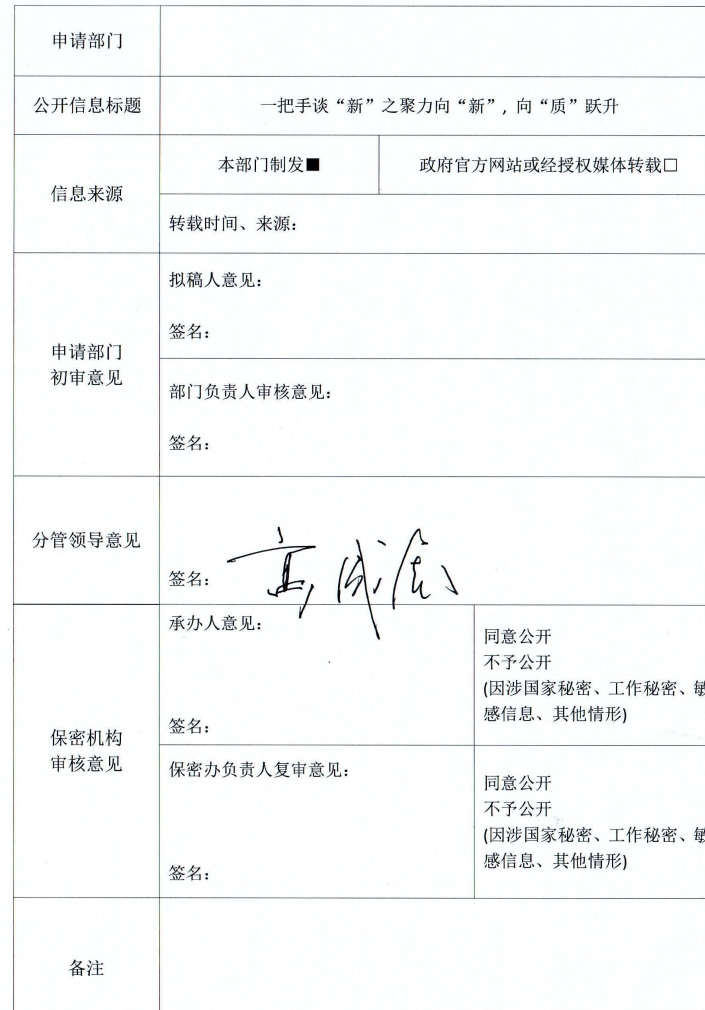 申请部门
公开信息标题
一把手谈“新”之聚力向“新”,向“质”跃升
信息来源
本部门制发■
政府官方网站或经授权媒体转载□
转载时间、来源:
申请部门
初审意见
拟稿人意见:
签名:
部门负责人审核意见:
签名:
分管领导意见
签名:
保密机构
审核意见
承办人意见:
签名:
同意公开
不予公开
(因涉国家秘密、工作秘密、敏
感信息、其他情形)
保密办负责人复审意见:
签名:
同意公开
不予公开
(因涉国家秘密、工作秘密、敏
感信息、其他情形)
备注